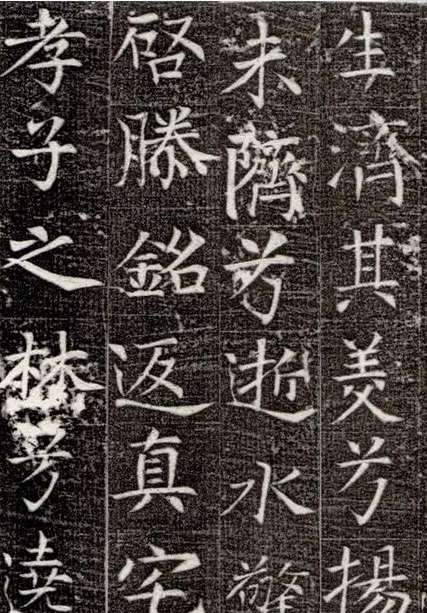 生濟其美兮揚
未薺兮逝水驚
啓滕銘返真宅
孝子之林兮遶